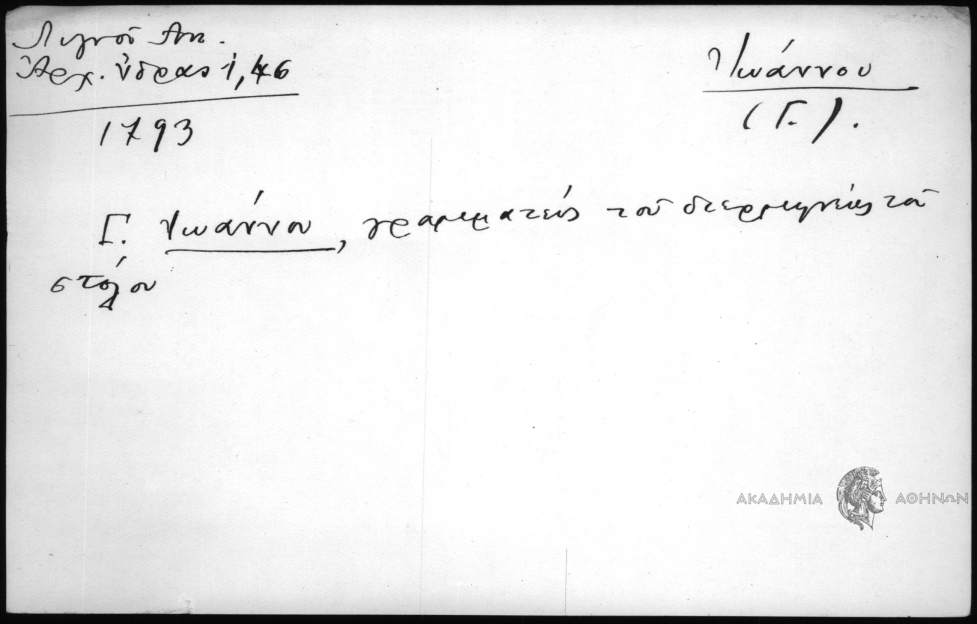 Λιγνοῦ Αν.
Ἀρχ. Ὕδρας 1,46
1793
Ἰωάννου
(Γ.).
Γ. Ἰωάννου, γραμματεύς τοῦ διερμηνέως τοῦ
στόλου
ΑΚΑΔΗΜΙΑ ΑΘΗΝΩΝ